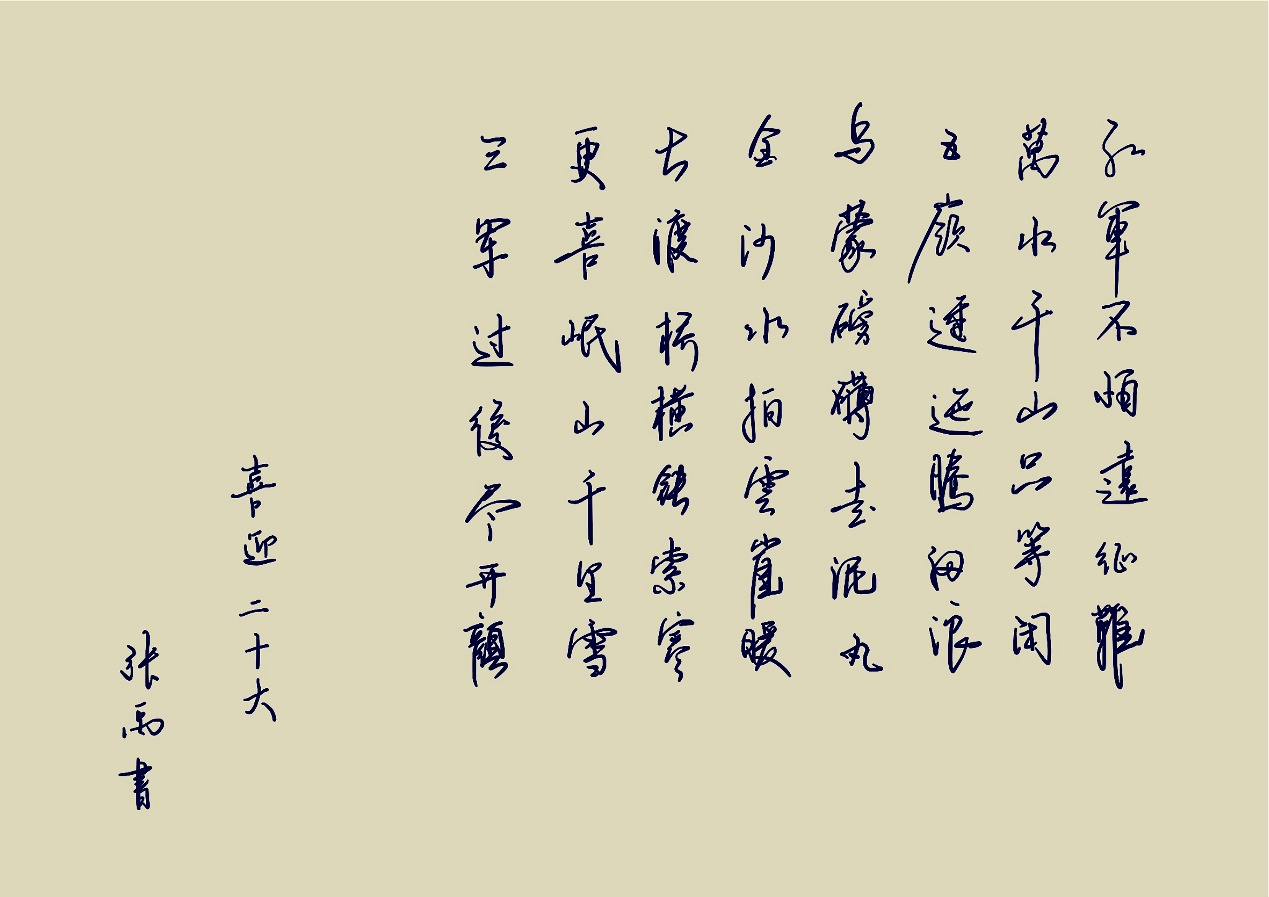 紅軍不怕遠征難
萬水千山只等闲
五嶺逶迤騰細浪
乌蒙磅礴走泥丸
金沙水拍雲崖暖
大渡桥横鉄索寒
更喜岷山千里雪
三军过後尽开顏
喜迎二十大
张雨書